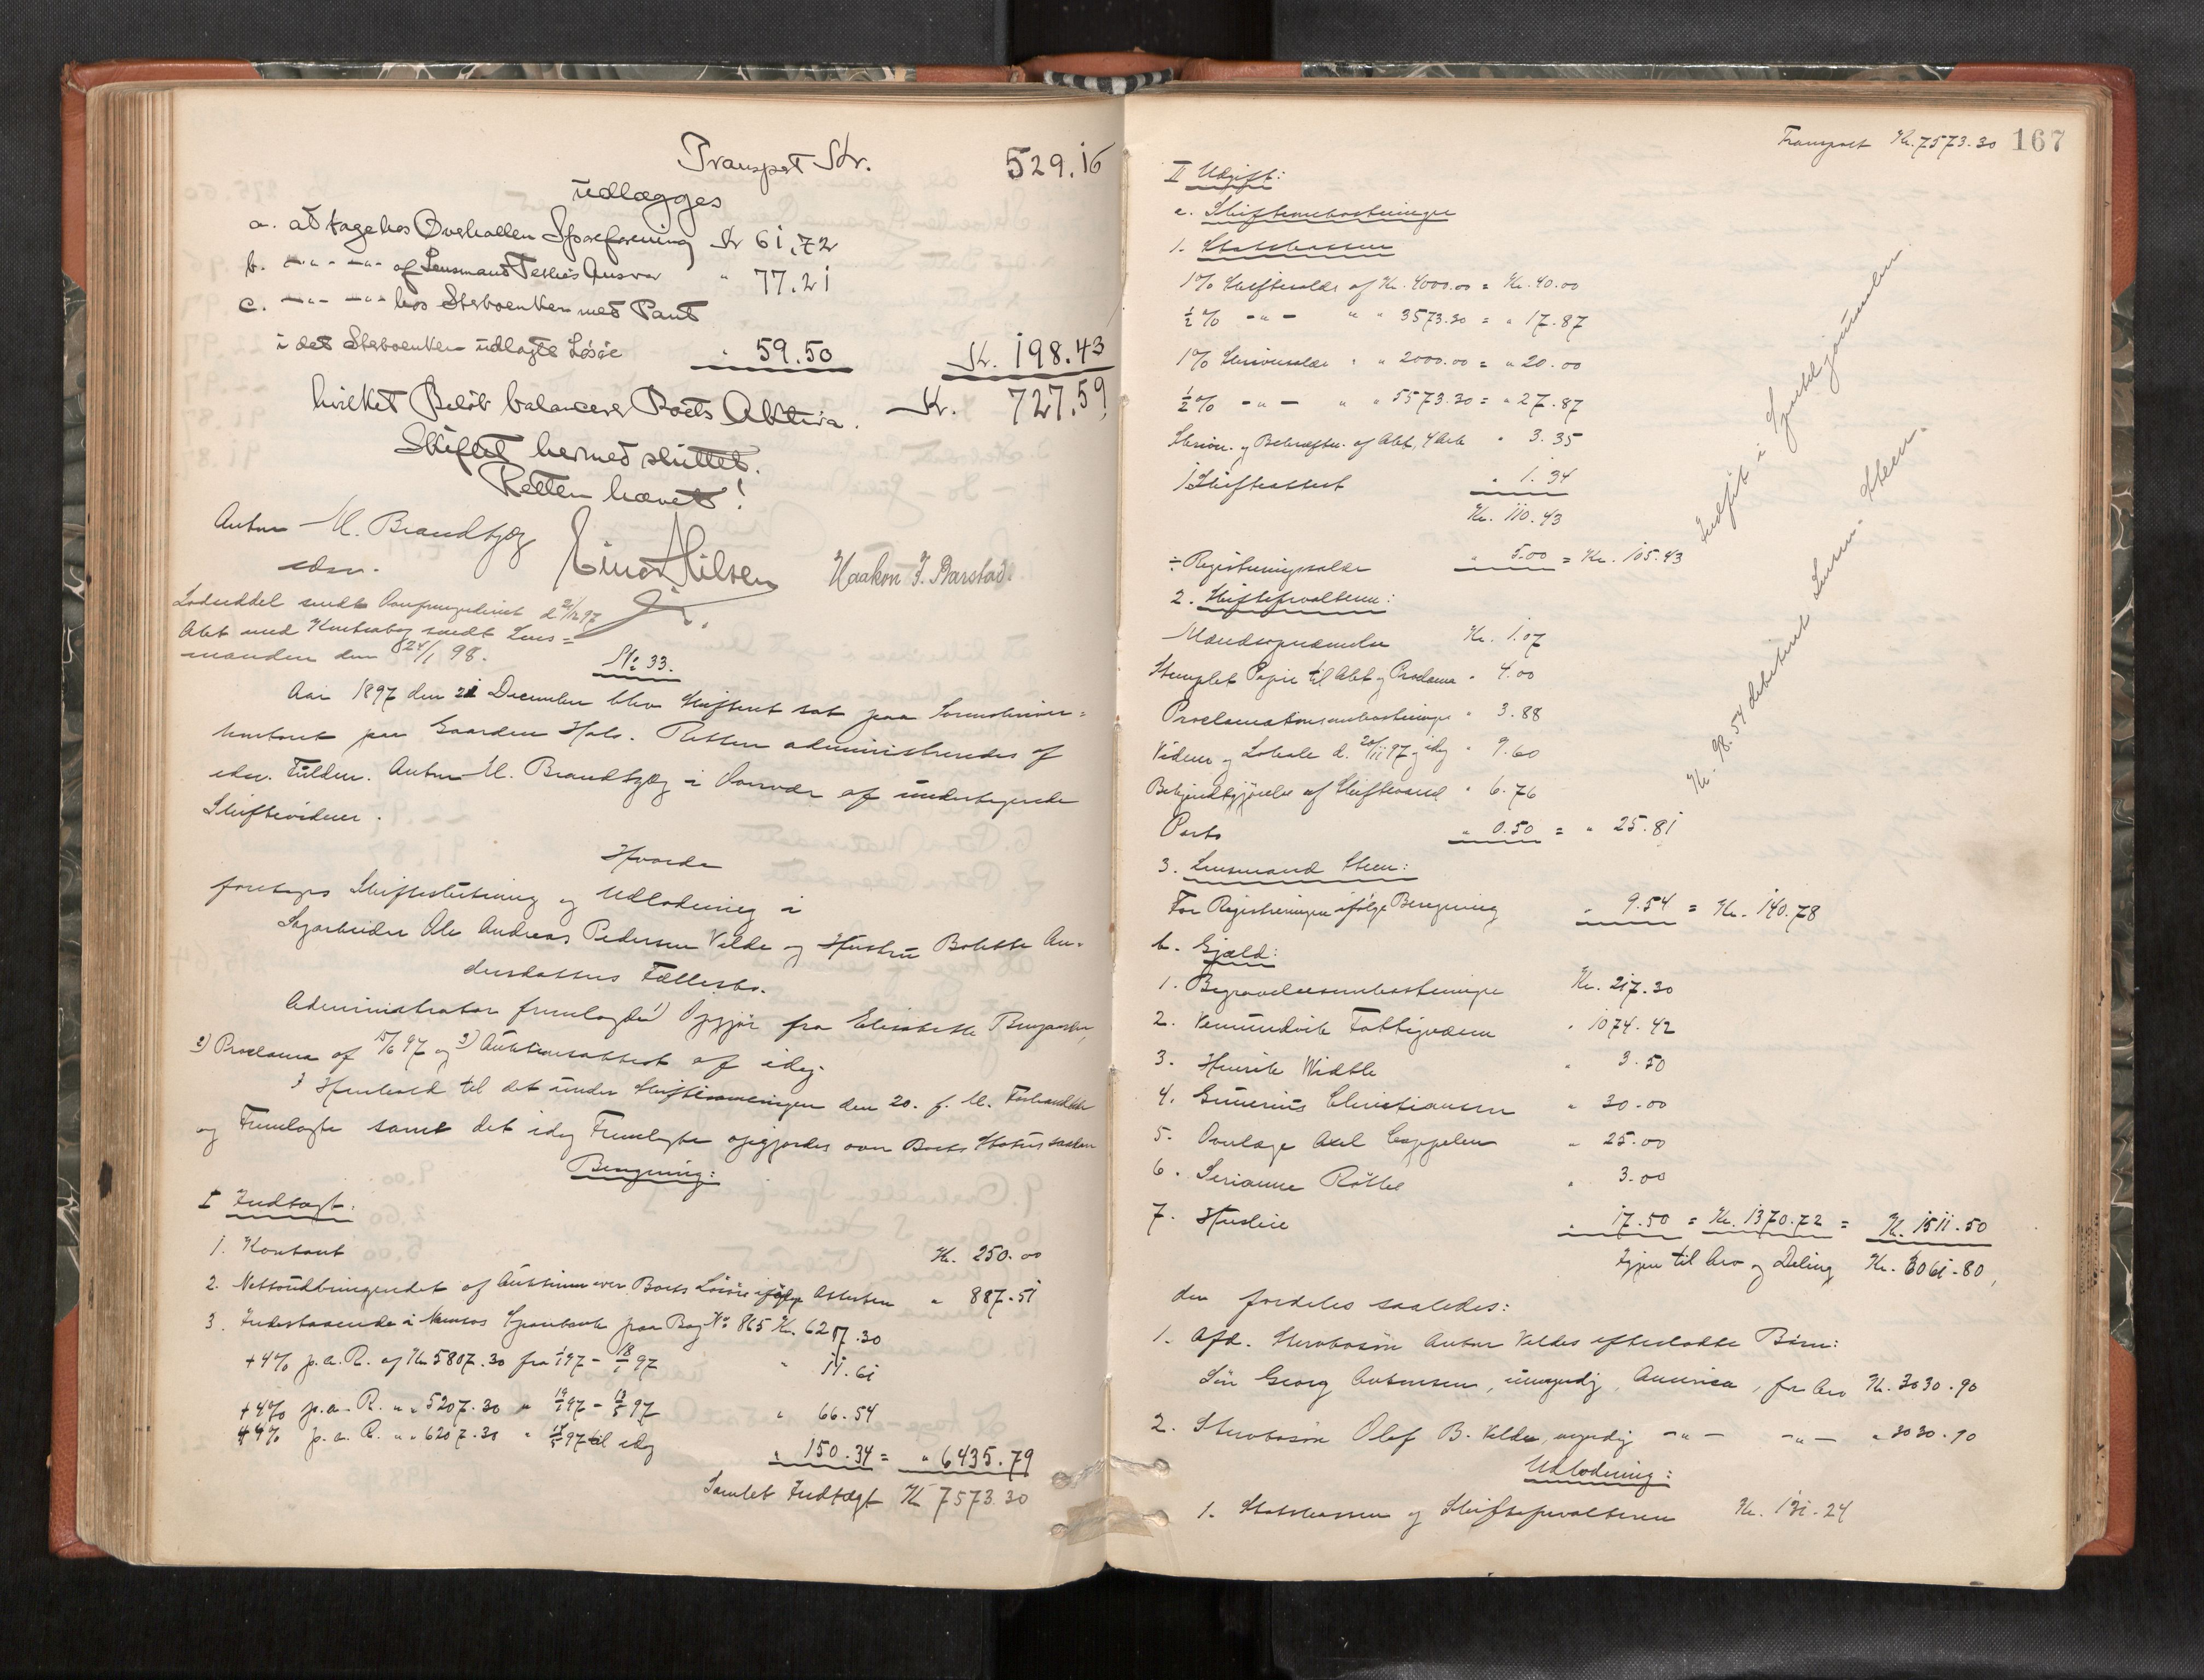 Transport Kr. 529.16
udlægges
a. at tage hos Overhallen Spareforening Kr 61.72
b. —"— —"— af Lensmand Tetlies Ansvar " 77.21
c. —"— —"— hos Sterboenken med Pant
i det Sterboenken udlagte Løsøe " 59.50 Kr. 198.43
hvilket Beløb balancerer Boets Aktiva. Kr. 727.59
Skiftet hermed sluttet.
Retten hævet!
Anton M. Brandtzæg
edsv.
Einar Nilsen Haakon J. Barstad.
Lodseddel sendt 21/12 97
Akt med Kontrabog sendt Lens=
manden den 24/1 98.
No 33.
Aar 1897 den 21 December blev Skifteret sat paa Sorenskriver=
kontoret paa Gaarden Hals. Retten administreredes af
edsv. Fuldm. Anton M. Brandtzæg i Overvær af undertegnede
Skiftevidner.
Hvorda
foretoges Skifteslutning og Udlodning i
Sagarbeider Ole Andreas Pedersen Velde og Hustru Bolette An=
dersdatters Fællesbo.
Administrator fremlagde 1) Opgjør fra Elisabeth
2) Proclama af 15/6 97 og 3) Auktionsattest af idag.
I Henhold til det under Skiftesamlingen den 20. f. M. Forhandlede
og Fremlagte samt det idag Fremlagte opgjordes over Boets Status saadan
Beregning:
I Indtægt.
1. Kontant Kr. 250.00
2. Nettoudbringendet af Auktionen over Boets Løsøre ifølge Attesten " 887.51
3. Indestaaende i Namsos Sparebank paa Bog No 865 Kr. 6207.30
+ 4% p.a. R. af Kr 5807.30 fra 1/1 97 - 18/1 97 " 11.61
+ 4% p.a. R. " " 5207.30 " 19/1 97 - 13/5 97 " 66.54
+ 4% p.a. R. " " 6207.30 " 14/5 97 til idag " 150.34 = " 6435.79
Samlet Indtægt Kr 7573.30
Transport Kr. 7573.30 167
II Udgift:
a. Skifteomkostninger
1. Statskassen
1% Skiftesalær af Kr. 4000.00 = Kr. 40.00
½% -"- " " 3573.30 = " 17.87
1% Skriversalær " " 2000.00 = " 20.00
½% -"- " " 5573.30 = " 27.87
Skriv. og Bekræftn. af Akt, 4 Ark " 3.35
1 Skifteattest " 1.34
Kr. 110.43
÷ Registreringssalær " 5.00 = Kr. 105.43
2. Skifteforvalteren:
Mændsopnævnelse Kr. 1.07
Stemplet Papir til Akt og Proclama " 4.00
Proclamationsomkostninger " 3.88
Vidner og Lokale d. 20/11 97 og idag " 9.60
Bekjendtgjørelse af Skiftevarsel " 6.76
Porto " 0.50 = " 25.81
3. Lensmand Steen:
For Registreringen ifølge Beregning " 9.54 = Kr. 140.78
b. Gjæld:
1. Begravelsesomkostninger Kr. 217.30
2. Vemundvik Fattigvæsen " 1074.42
3. Henrik Widtle " 3.50
4. Gunerius Christiansen " 30.00
5. Overlæge Axel Cappelen " 25.00
6. Serianne Røttel " 3.00
7. Husleie " 17.50 = Kr. 1370.72 = Kr. 1511.50
Igjen til Arv og Deling Kr. 6061.80,
der fordeles saaledes:
1. Afd. Sterbosøn Anton Veldes efterladte Børn:
Søn Georg Antonsen, umyndig, America, for Arv Kr. 3030.90
2. Sterbosøn Olaf B. Velde, myndig -"- -"- " 3030.90
Udlodning:
1. Statskassen og Skifteforvalteren Kr. 131.24
Indført i Sporteljournalen
Kr. 98.54 debiteret Lensm. Steen.